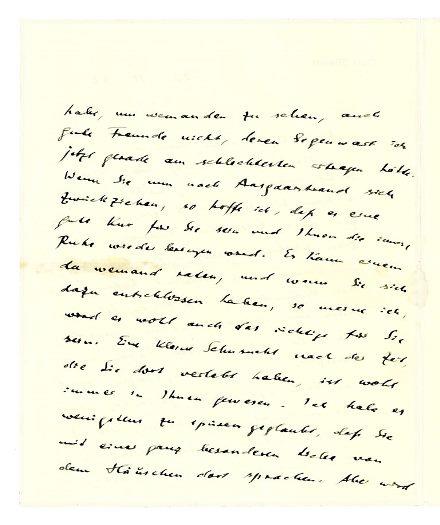 habe, um niemanden zu sehen, auch
gute Freunde nicht, deren Gegenwart ich
jetzt gerade am schlechtesten ertragen hätte.
Wenn Sie nun nach Aasgaardstrand sich
zurückziehen, so hoffe ich, daß es eine
gute Kur für Sie sein und Ihnen die innere
Ruhe wieder bringen wird. Es kann einem
da niemand raten, und wenn Sie sich
dazu entschlossen haben, so meine ich,
wird es wohl auch das richtige für Sie
sein. Eine kleine Sehnsucht nach der Zeit
die Sie dort verlebt haben, ist wohl
immer in Ihnen gewesen. Ich habe es
wenigstens zu spüren geglaubt, daß Sie
mit einer ganz besonderen Liebe von
dem Häuschen dort sprachen. Aber wird